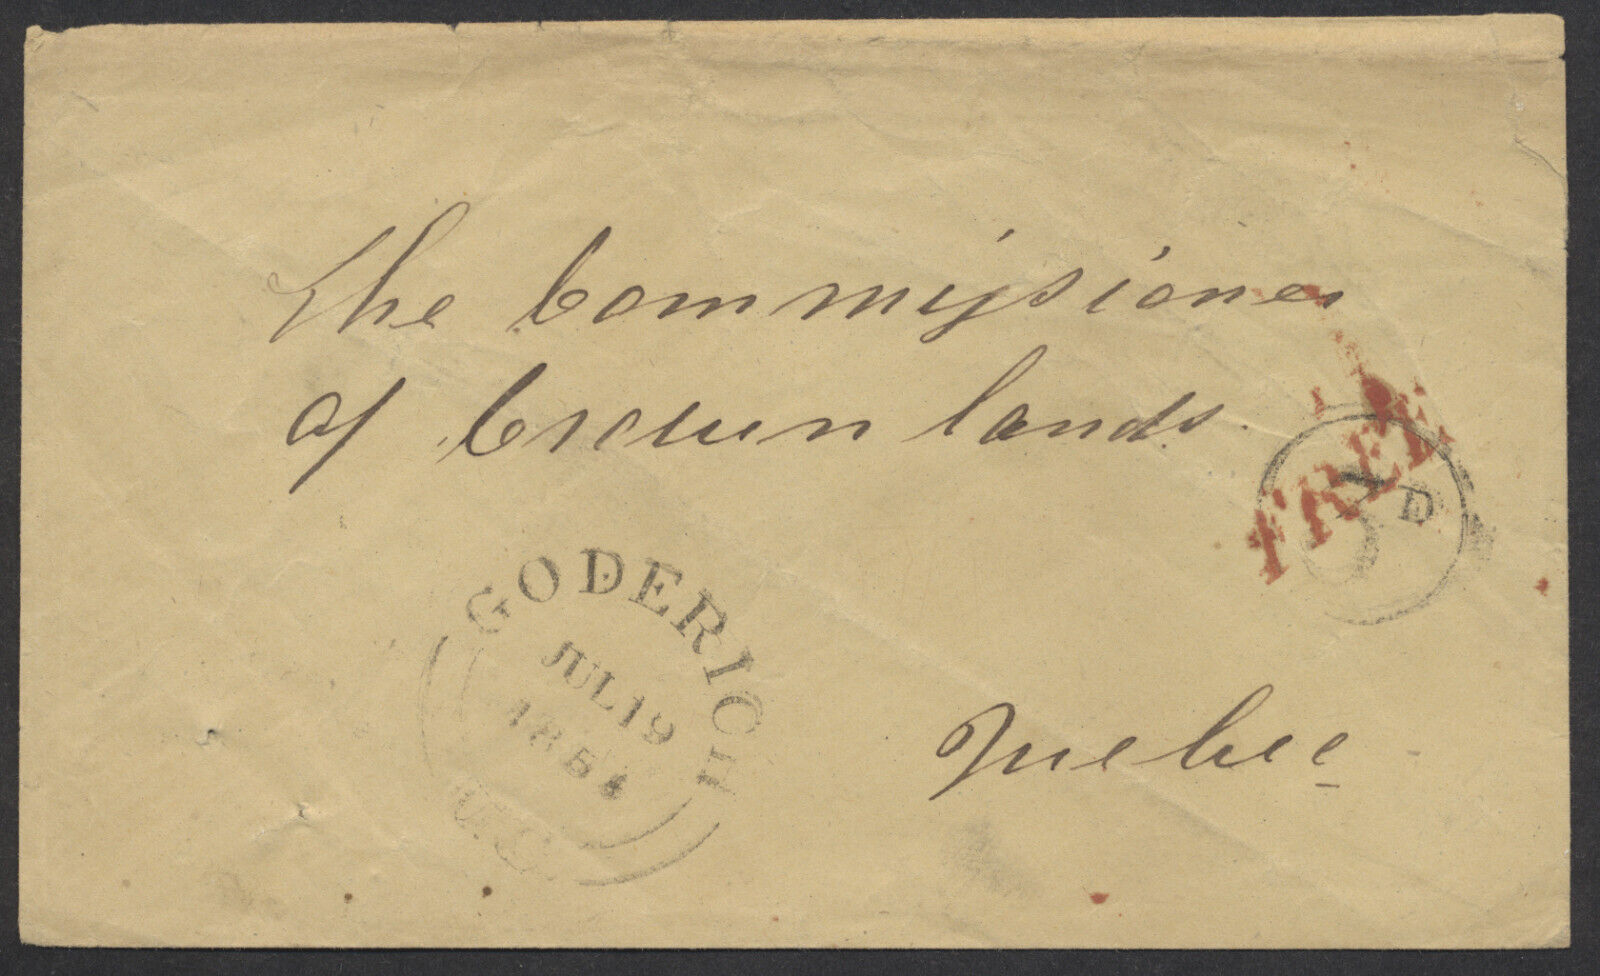 The Commissioner
of Crown lands.
FREE
3 D
GODERICH
JUL 19
1854
U.C.
Quebec